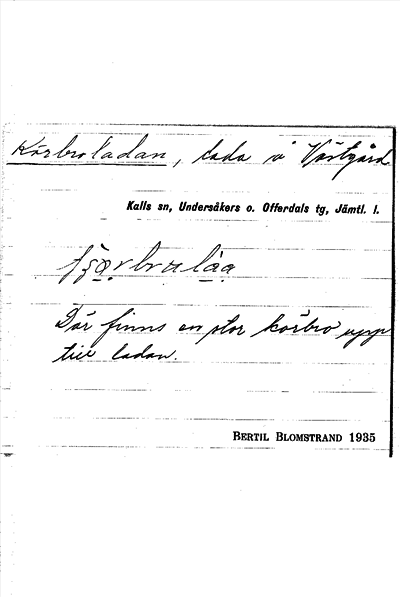 Körbroladan, lada å Västgård
Kalls sn, Undersåkers o. Offerdals tg, Jämtl. l.
Där finns en stor körbro upp
till ladan.
BERTIL BLOMSTRAND 1935